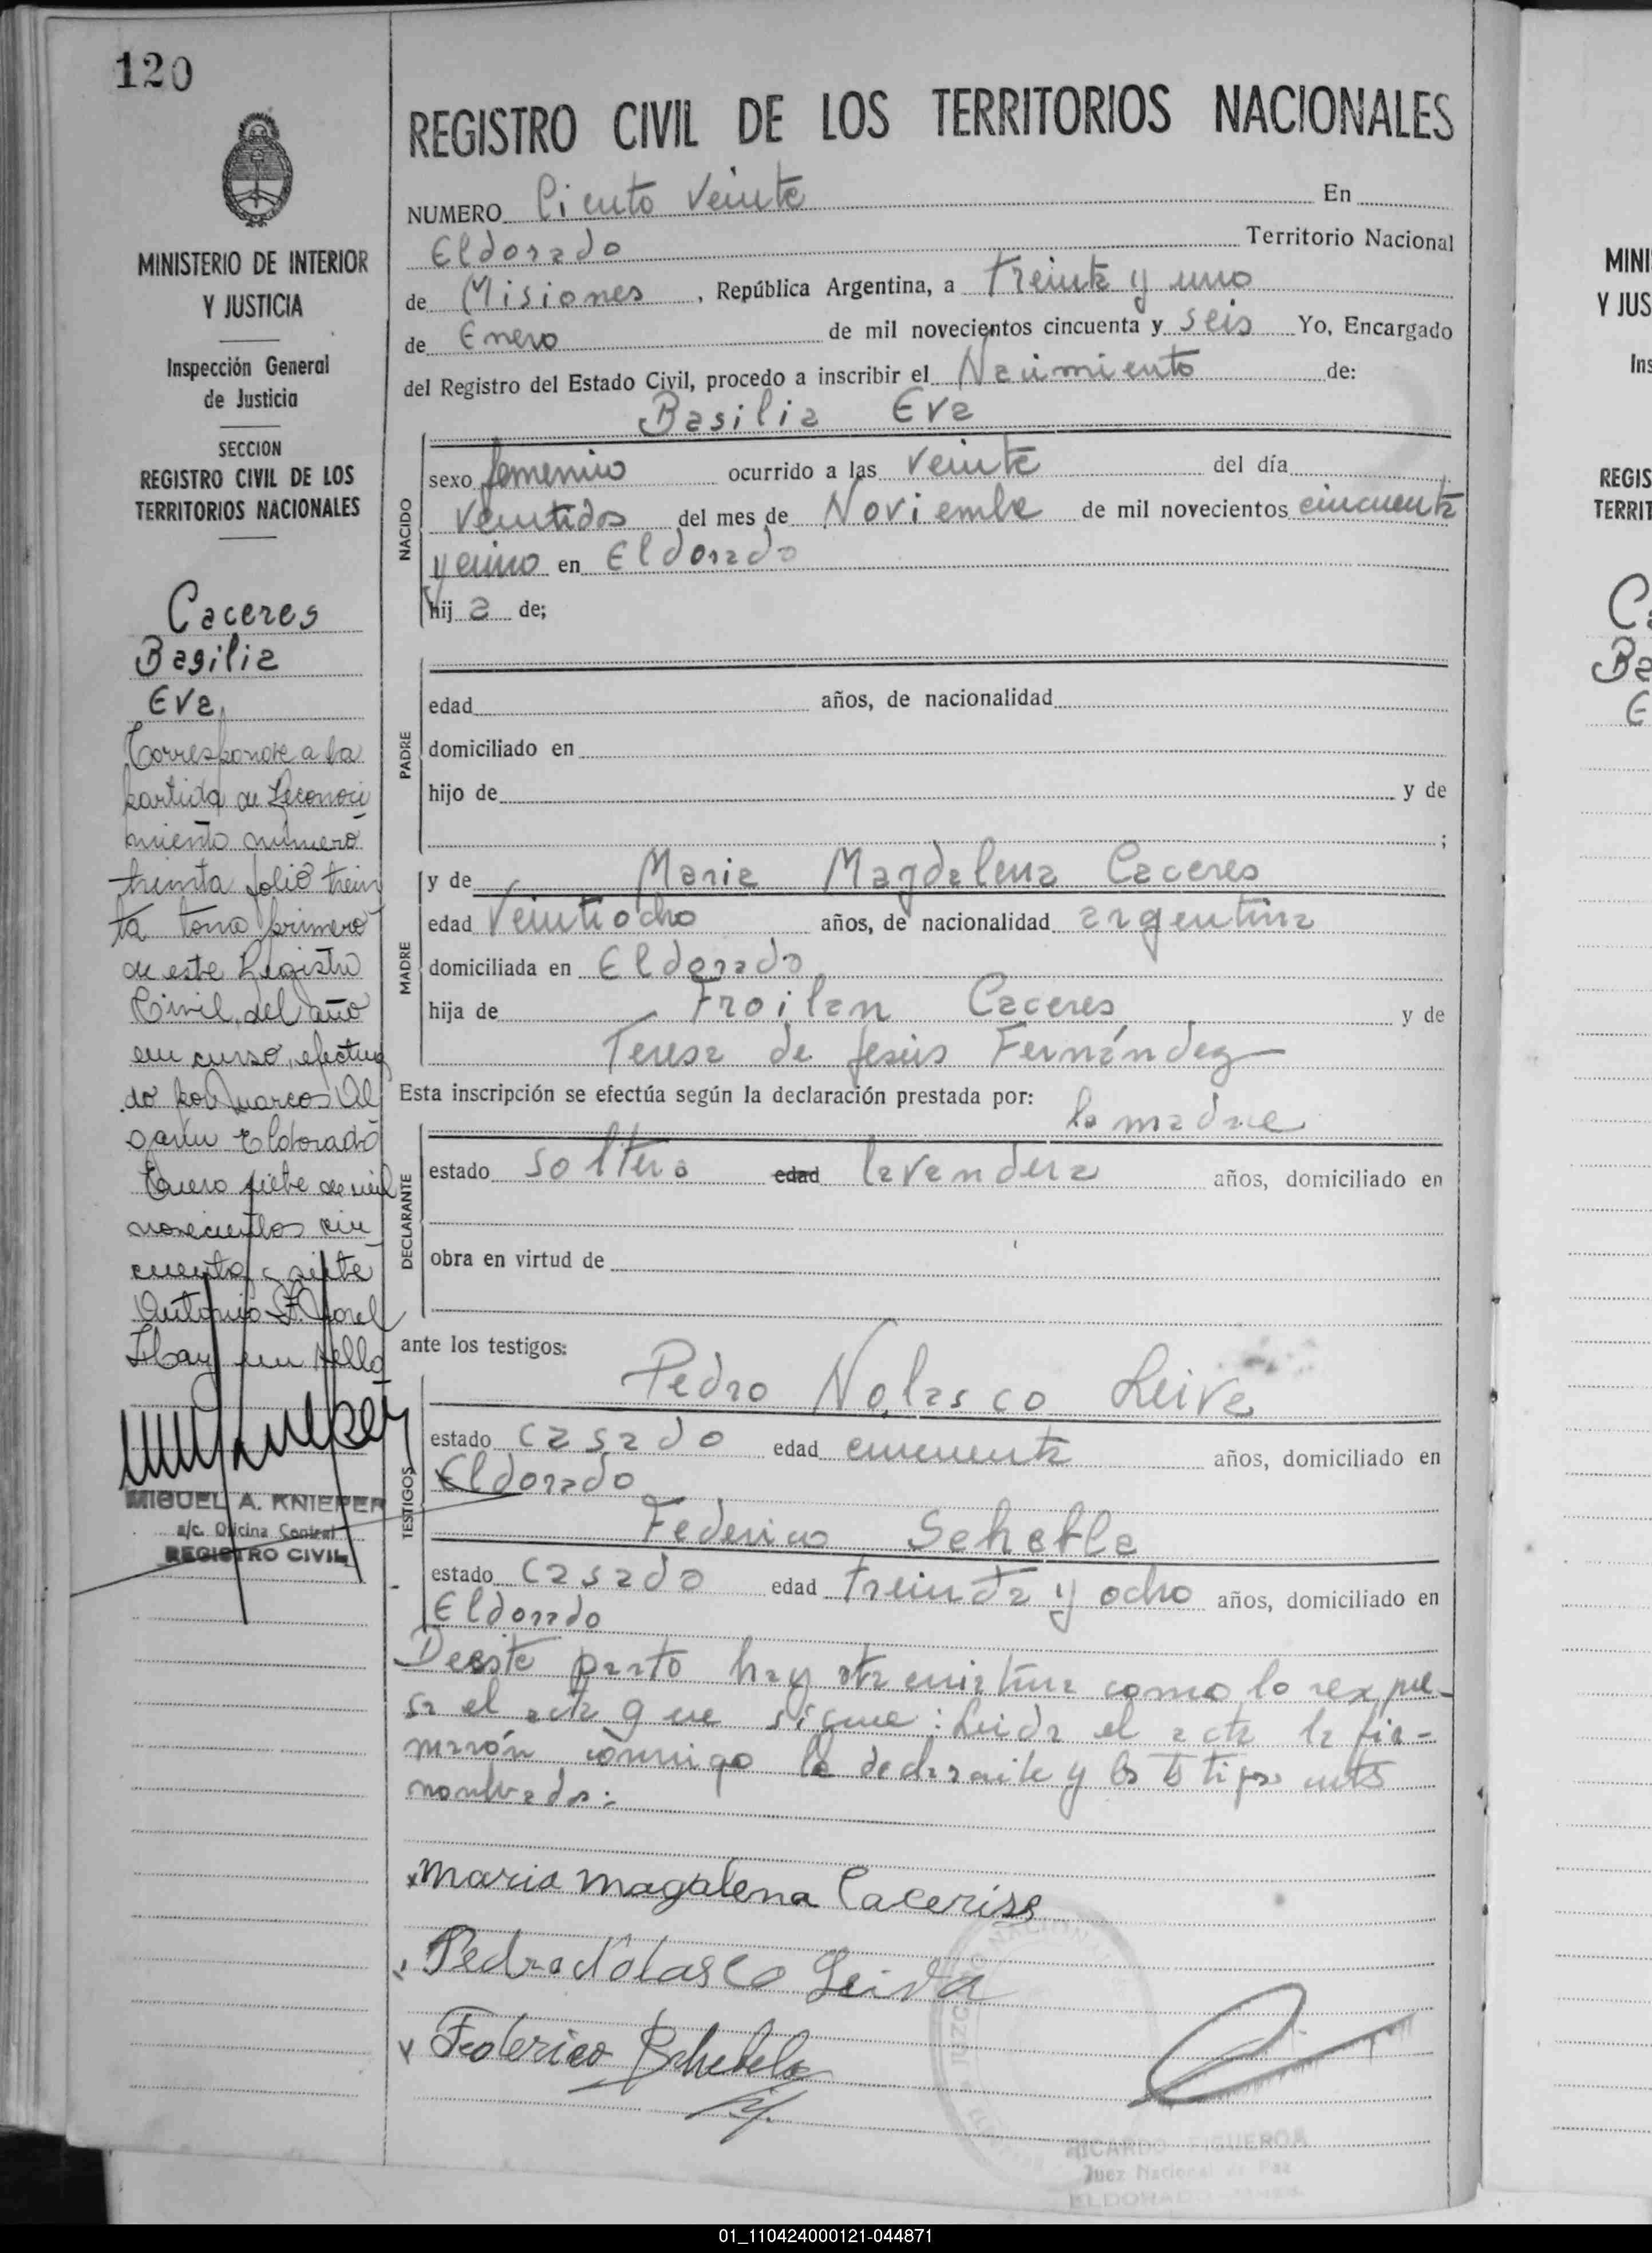 120
MINISTERIO DE INTERIOR
Y JUSTICIA
Inspección General
de Justicia
SECCION
REGISTRO CIVIL DE LOS
TERRITORIOS NACIONALES
Caceres
Basilia
Eva
Corresponde a la
partida de Reconoci
miento número
treinta folio trein
ta tomo primero
de este Registro
Civil, del año
en curso, efectua
do por Marcos
Eldorado
Enero siete de mil
novecientos cin
cuenta y siete
Antonio
Hay un sello
MIGUEL A. KNIEPER
a/c. Oficina Central
REGISTRO CIVIL
REGISTRO CIVIL DE LOS TERRITORIOS NACIONALES
NUMERO Ciento Veinte En
Eldorado Territorio Nacional
de Misiones, República Argentina, a treinta y uno
de Enero de mil novecientos cincuenta y seis Yo, Encargado
del Registro del Estado Civil, procedo a inscribir el Nacimiento de:
Basilia Eva
NACIDO
sexo femenino ocurrido a las veinte del día
veintidos del mes de Noviembre de mil novecientos cincuenta
y cinco en Eldorado
hij a de;
PADRE
edad años, de nacionalidad
domiciliado en
hijo de y de
;
MADRE
y de Maria Magdalena Caceres
edad Veintiocho años, de nacionalidad argentina
domiciliada en Eldorado
hija de Froilan Caceres y de
Teresa de Jesús Fernández
Esta inscripción se efectúa según la declaración prestada por:
la madre
DECLARANTE
estado soltera edad lavandera años, domiciliado en
obra en virtud de
ante los testigos:
TESTIGOS
Pedro Nolasco Leiva
estado casado edad cincuenta años, domiciliado en
Eldorado
Federico
estado casado edad treinta y ocho años, domiciliado en
Eldorado
De este parto hay otra como lo expre-
sa el acta que sigue: Leida el acta la fir-
marón conmigo la declarante y los testigos antes
nombrados:
Maria Magdalena
Pedro Nolasco Leiva
Federico
RICARDO FIGUEROA
Juez Nacional de Paz
ELDORADO
MINI
Y JUS
Ins
REGIS
TERRIT
01_110424000121-044871